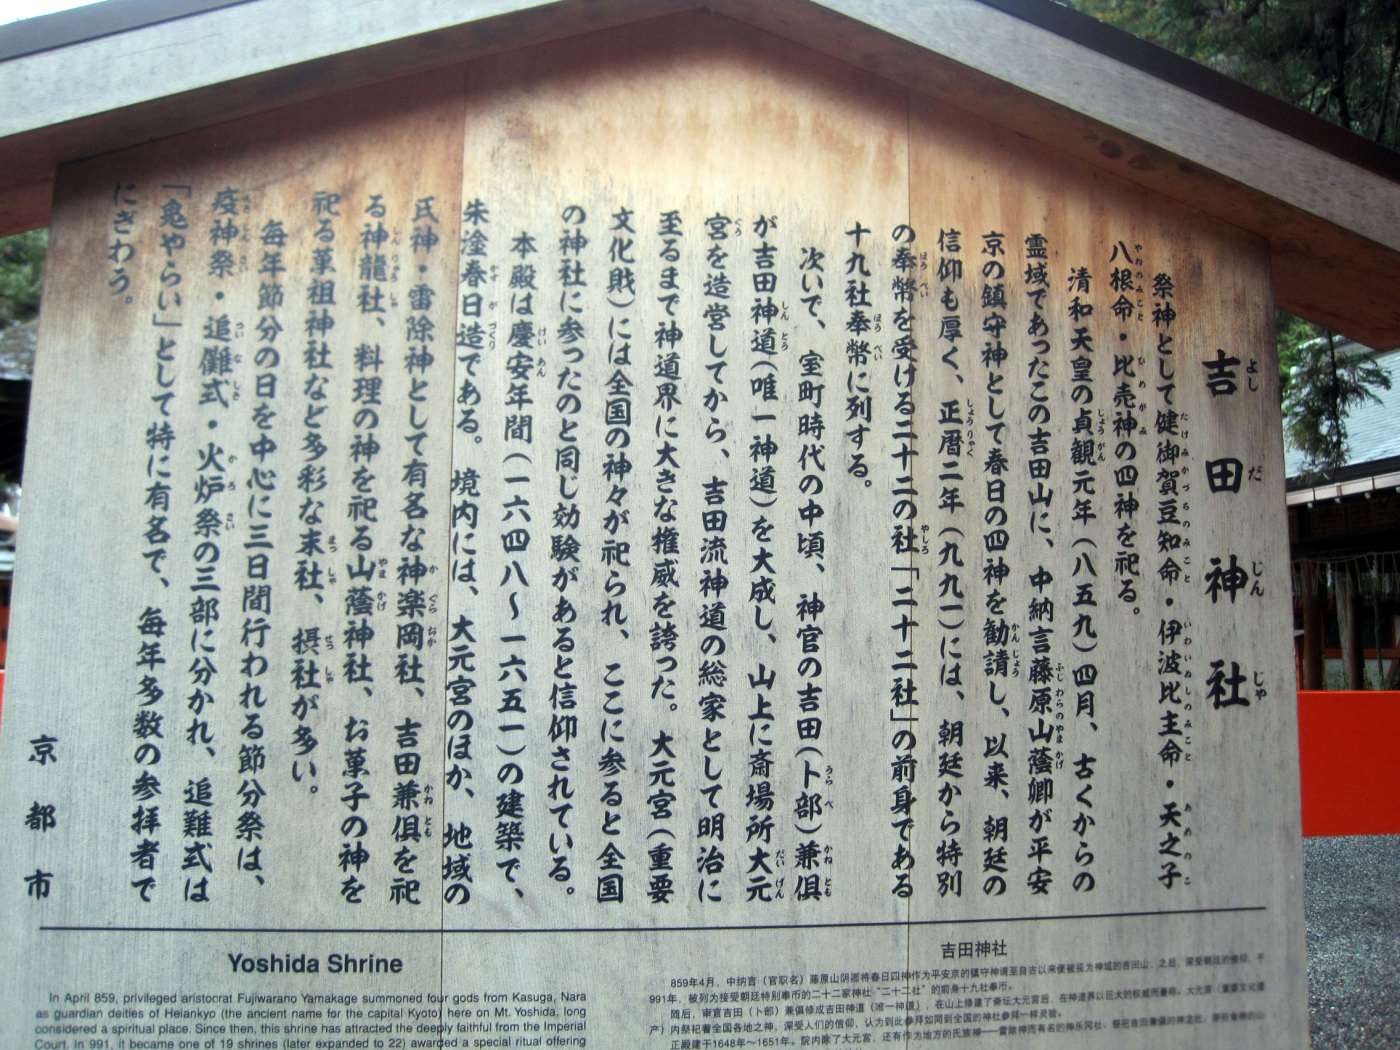 吉田神社
祭神として健御賀豆知命・伊波比主命・天之子
八根命・比売神の四神を祀る。
清和天皇の貞観元年(八五九)四月、古くからの
霊域であったこの吉田山に、中納言藤原山蔭卿が平安
京の鎮守神として春日の四神を勧請し、以来、朝廷の
信仰も厚く、正暦二年(九九一)には、朝廷から特別
の奉幣を受ける二十二の社「二十二社」の前身である
十九社奉幣に列する。
次いで、室町時代の中頃、神官の吉田(卜部)兼俱
が吉田神道(唯一神道)を大成し、山上に斎場所大元
宮を造営してから、吉田流神道の総家として明治に
至るまで神道界に大きな権威を誇った。大元宮(重要
文化財)には全国の神々が祀られ、ここに参ると全国
の神社に参ったのと同じ効験があると信仰されている。
本殿は慶安年間(一六四八〜一六五一)の建築で、
朱塗春日造である。境内には、大元宮のほか、地域の
氏神・雷除神として有名な神楽岡社、吉田兼俱を祀
る神龍社、料理の神を祀る山蔭神社、お菓子の神を
祀る菓祖神社など多彩な末社、摂社が多い。
毎年節分の日を中心に三日間行われる節分祭は、
疫神祭・追儺式・火炉祭の三部に分かれ、追難式は
「鬼やらい」として特に有名で、毎年多数の参拝者で
にぎわう。
京都市
Yoshida Shrine
In April 859, privileged aristocrat Fujiwarano Yamakage summoned four gods from Kasuga, Nara
as guardian deities of Heiankyo (the ancient name for the capital Kyoto) here on Mt. Yoshida, long
considered a spiritual place. Since then, this shrine has attracted the deeply faithful from the Imperial
Court. In 991, it became one of 19 shrines (later expanded to 22) awarded a special ritual offering
吉田神社
859年4月，中纳言（官职名）藤原山阴卿将春日四神作为平安京的镇守神请至自古以来便被视为神域的吉田山。之后，深受朝廷的信仰，于
991年，被列为接受朝廷特别奉币的二十二家神社“二十二社”的前身十九社奉币。
随后，审官吉田（卜部）兼俱修成吉田神道（唯一神道），在山上修建了斋坛大元宫后，在神道界以巨大的权威而著称。大元宫（重要文化遗
产）内祭祀着全国各地之神，深受人们的信仰，认为到此参拜如同到全国的神社参拜一样灵验。
正殿建于1648年～1651年。院内除了大元宫，还有作为地方的氏族神——雷除神而有名的神乐冈社，祭祀吉田兼俱的神龙社，